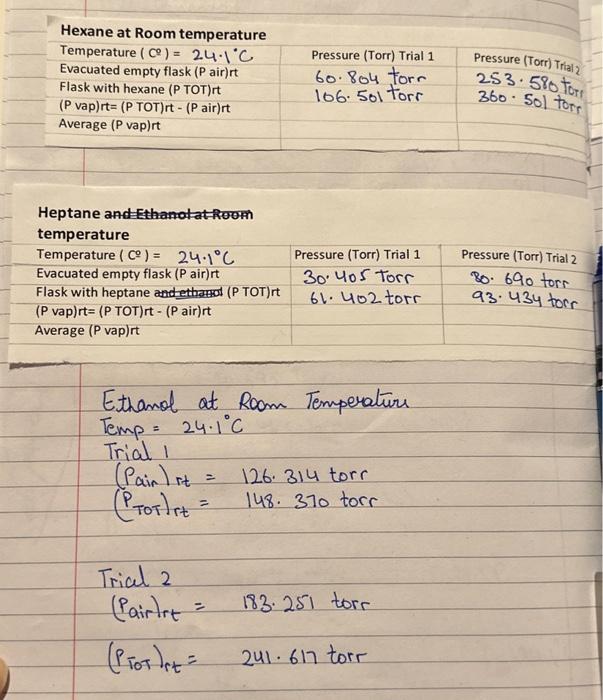 Hexane at Room temperature
Temperature ( Cº ) = 24.1°C Pressure (Torr) Trial 1 Pressure (Torr) Trial 2
Evacuated empty flask (P air)rt 60.804 torr 253.580 torr
Flask with hexane (P TOT)rt 106.501 torr 360.501 torr
(P vap)rt= (P TOT)rt - (P air)rt
Average (P vap)rt
Heptane and Ethanol at Room
temperature
Temperature ( Cº ) = 24.1°C Pressure (Torr) Trial 1 Pressure (Torr) Trial 2
Evacuated empty flask (P air)rt 30.405 Torr 80.690 torr
Flask with heptane and ethanol (P TOT)rt 61.402 torr 93.434 torr
(P vap)rt= (P TOT)rt - (P air)rt
Average (P vap)rt
Ethanol at Room Temperature
Temp = 24.1°C
Trial 1
(Pair)rt = 126.314 torr
(PTOT)rt = 148.370 torr
Trial 2
(Pair)rt = 183.251 torr
(PTOT)rt = 241.617 torr